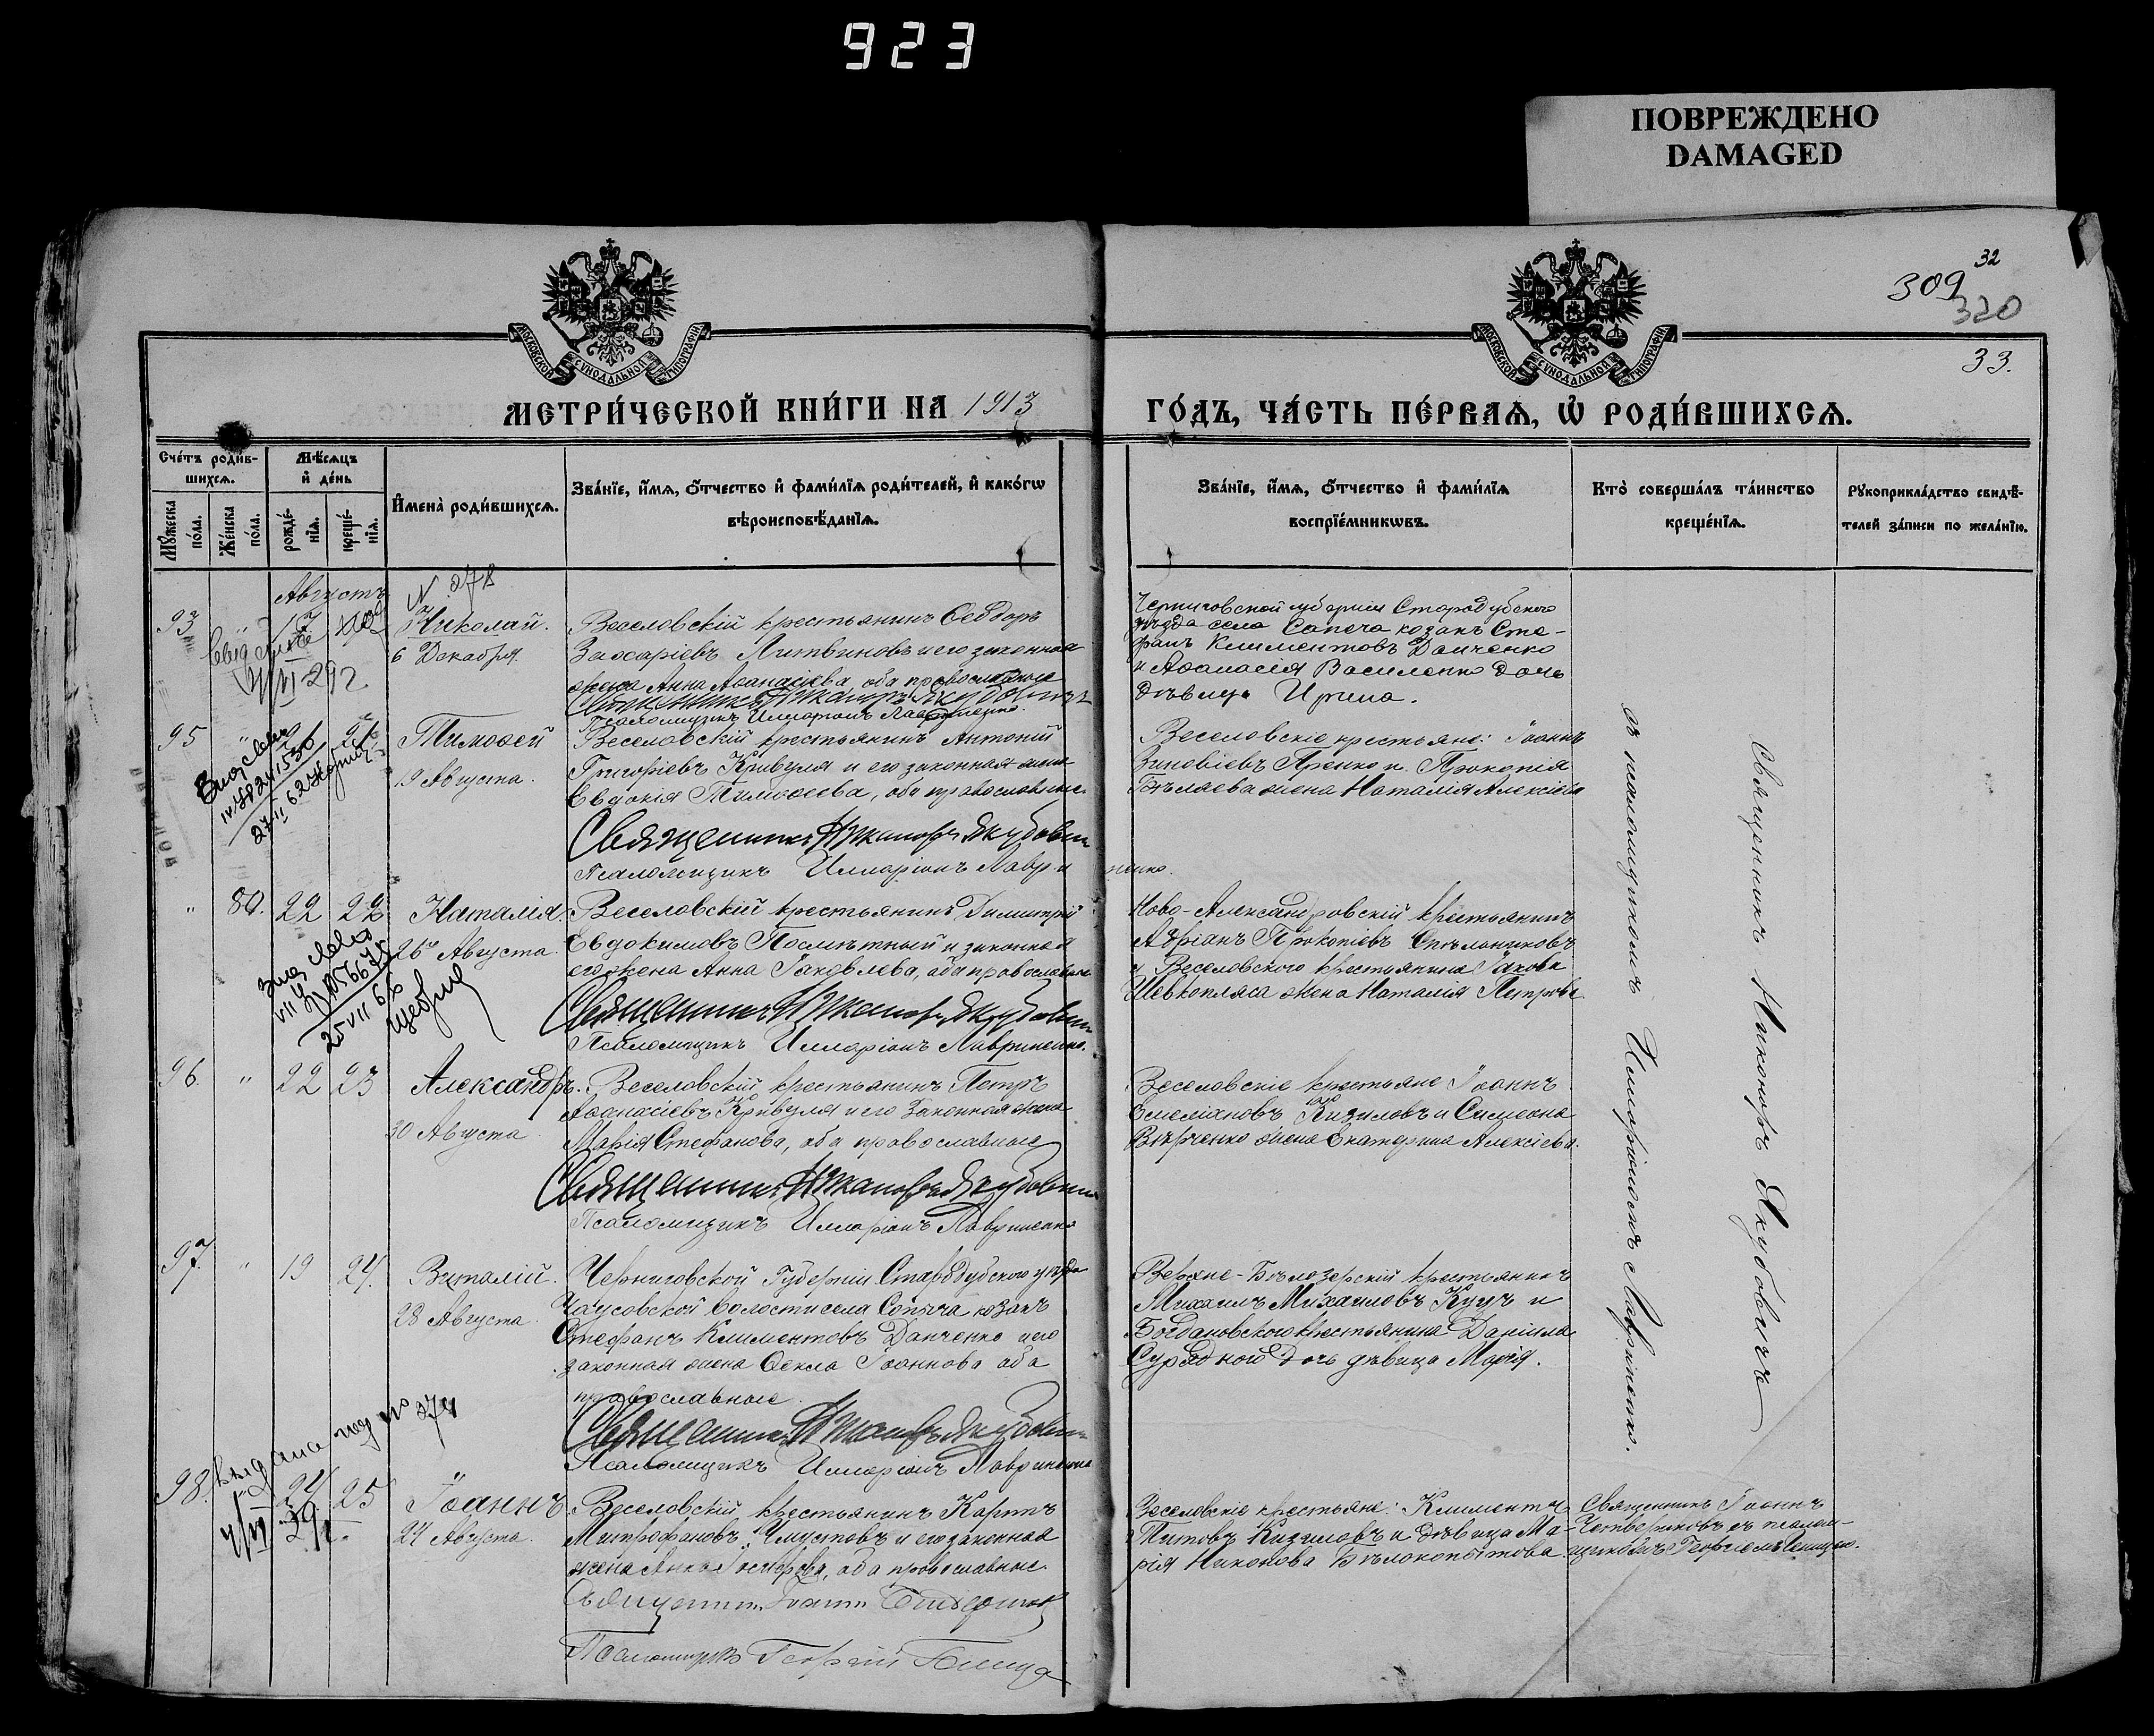 923
ПОВРЕЖДЕНО
DAMAGED
МОСКОВСКОЙ СѴНОДАЛЬНОЙ ТИПОГРАФІИ
МОСКОВСКОЙ СѴНОДАЛЬНОЙ ТИПОГРАФІИ
32
309
320
33.
МЕТРИ́ЧЕСКОЙ КНИ́ГИ НА 1913
ГО́ДЪ, ЧА́СТЬ ПЕ́РВАѦ, Ѡ҆ РОДИ́ВШИХСѦ.
Сче́тъ роди́в-
шихсѧ.
Мѣ́сѧцъ
и҆ де́нь
Мꙋ́жеска
по́ла.
Же́нска
по́ла.
рожде́-
нїѧ.
креще́-
нїѧ.
И҆мена̀ роди́вшихсѧ.
Зва́нїе, и҆́мѧ, ѻ҆́тчество и҆ фами́лїѧ роди́телей, и҆ како́гѡ
вѣроисповѣ́данїѧ.
Зва́нїе, и҆́мѧ, ѻ҆́тчество и҆ фами́лїѧ
воспрїе́мникѡвъ.
Кто̀ соверша́лъ та́инство
креще́нїѧ.
Рꙋкоприкла́дство свидѣ́-
телей за́писи по жела́нїю.
Августъ
N 278
93
Николай.
6 Декабря.
Веселовскій крестьянинъ Ѳеодоръ
Захаріевъ Литвиновъ и его законная
жена Анна Аѳанасіева, оба православные
Священникъ Никаноръ Якубовичъ
Псаломщикъ Илларіонъ Лавриненко.
Черниговской губерніи Стародубского
уѣзда села Сопыча козакъ Сте-
фанъ Климентовъ Данченко
и Аѳанасія Василенко дочь
дѣвица Ирина.
95
Тимоѳей
19 Августа.
Веселовскій крестьянинъ Антоній
Григоріевъ Кривуля и его законная жена
Евдокія Тимоѳеева, оба православные.
Священникъ Никаноръ Якубовичъ
Псаломщикъ Илларіонъ Лавриненко.
Веселовскіе крестьяне: Іоаннъ
Зиновіевъ Яренко и Прокопія
Бѣляева жена Наталія Алексіева
" 80. 22 22
Наталія.
26 Августа.
Веселовскій крестьянинъ Димитрій
Евдокимовъ Посмѣтный и законная
его жена Анна Іаковлева, оба православные
Священникъ Никаноръ Якубовичъ
Псаломщикъ Илларіонъ Лавриненко.
Ново-Александровскій крестьянинъ
Адріанъ Прокопіевъ
и Веселовского крестьянина Іакова
Шевкопляса жена Наталія Петрова.
96. " 22 23
Александръ.
30 Августа
Веселовскій крестьянинъ Петръ
Аѳанасіевъ Кривуля и его законная жена
Марія Стефанова, оба православные
Священникъ Никаноръ Якубовичъ
Псаломщикъ Илларіонъ Лавриненко
Веселовскіе крестьяне Іоаннъ
Емеліановъ Кизиловъ и Симеона
Вѣрченко жена Екатерина Алексіева.
97. " 19 24.
Виталій.
28 Августа.
Черниговской Губерніи Стародубского уѣзда
Чаусовской волости села Сопыча козакъ
Стефанъ Климентовъ Данченко и его
законная жена Ѳекла Іоаннова оба
православные.
Священникъ Никаноръ Якубовичъ
Псаломщикъ Илларіонъ Лавриненко
Верхне-Бѣлозерскій крестьянинъ
Михаилъ Михаиловъ Куцъ и
Богдановского крестьянина Даніила
Сурядной дочь дѣвица Марія.
выдана под № 274
98. " 24 25
Іоаннъ.
24 Августа.
Веселовскій крестьянинъ Карпъ
Митрофановъ и его законная
жена Анна, оба православные.
Священникъ Іоаннъ Четвериковъ
Псаломщикъ Георгій
Веселовскіе крестьяне: Климентъ
Титовъ Кизиловъ и дѣвица Ма-
рія Никонова Бѣлокопытова.
Священникъ Іоаннъ
Четвериковъ съ псалом-
щикомъ Георгіемъ
Священникъ Никаноръ Якубовичъ
съ псаломщикомъ Илларіономъ Лавриненко.